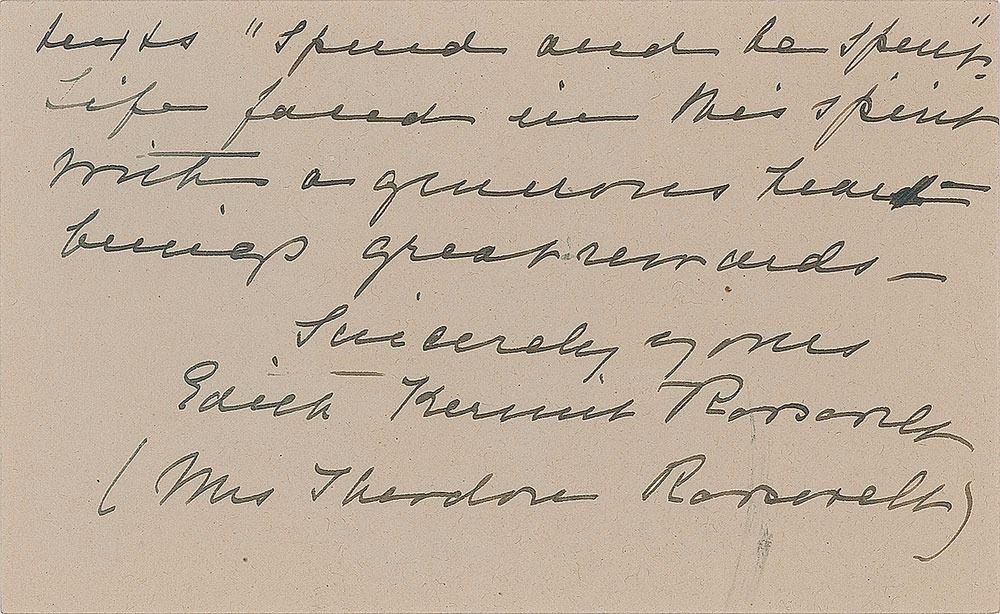 texts "Spend and be spent."
Life faced in this spirit
with a generous heart
brings great rewards —
Sincerely yours
Edith Kermit Roosevelt
(Mrs Theodore Roosevelt)